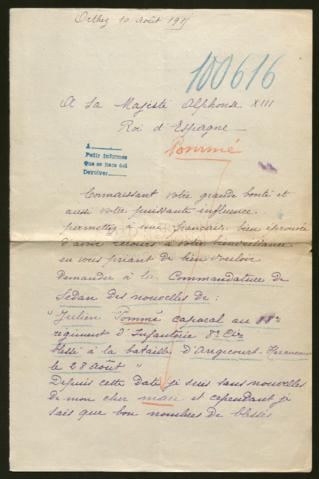 Orthez 10 août 191
100616
A Sa Majesté Alphonse XIII
Roi d'Espagne
Pommé
A
Pedir informes
Que se hace así
Devolver
Connaissant votre grande bonté et
aussi votre puissante influence
permettez à une française bien éprouvée
d'avoir recours à votre bienveillance
en vous priant de bien vouloir
demander à la Commandature de
Sedan des nouvelles de :
"Julien Pommé caporal au 18e
régiment d'Infanterie 8e Cie
blessé à la bataille d'Angecourt-Haraucourt
le 28 août"
Depuis cette date je suis sans nouvelles
de mon cher mari et cependant je
sais que bon nombre de blessés